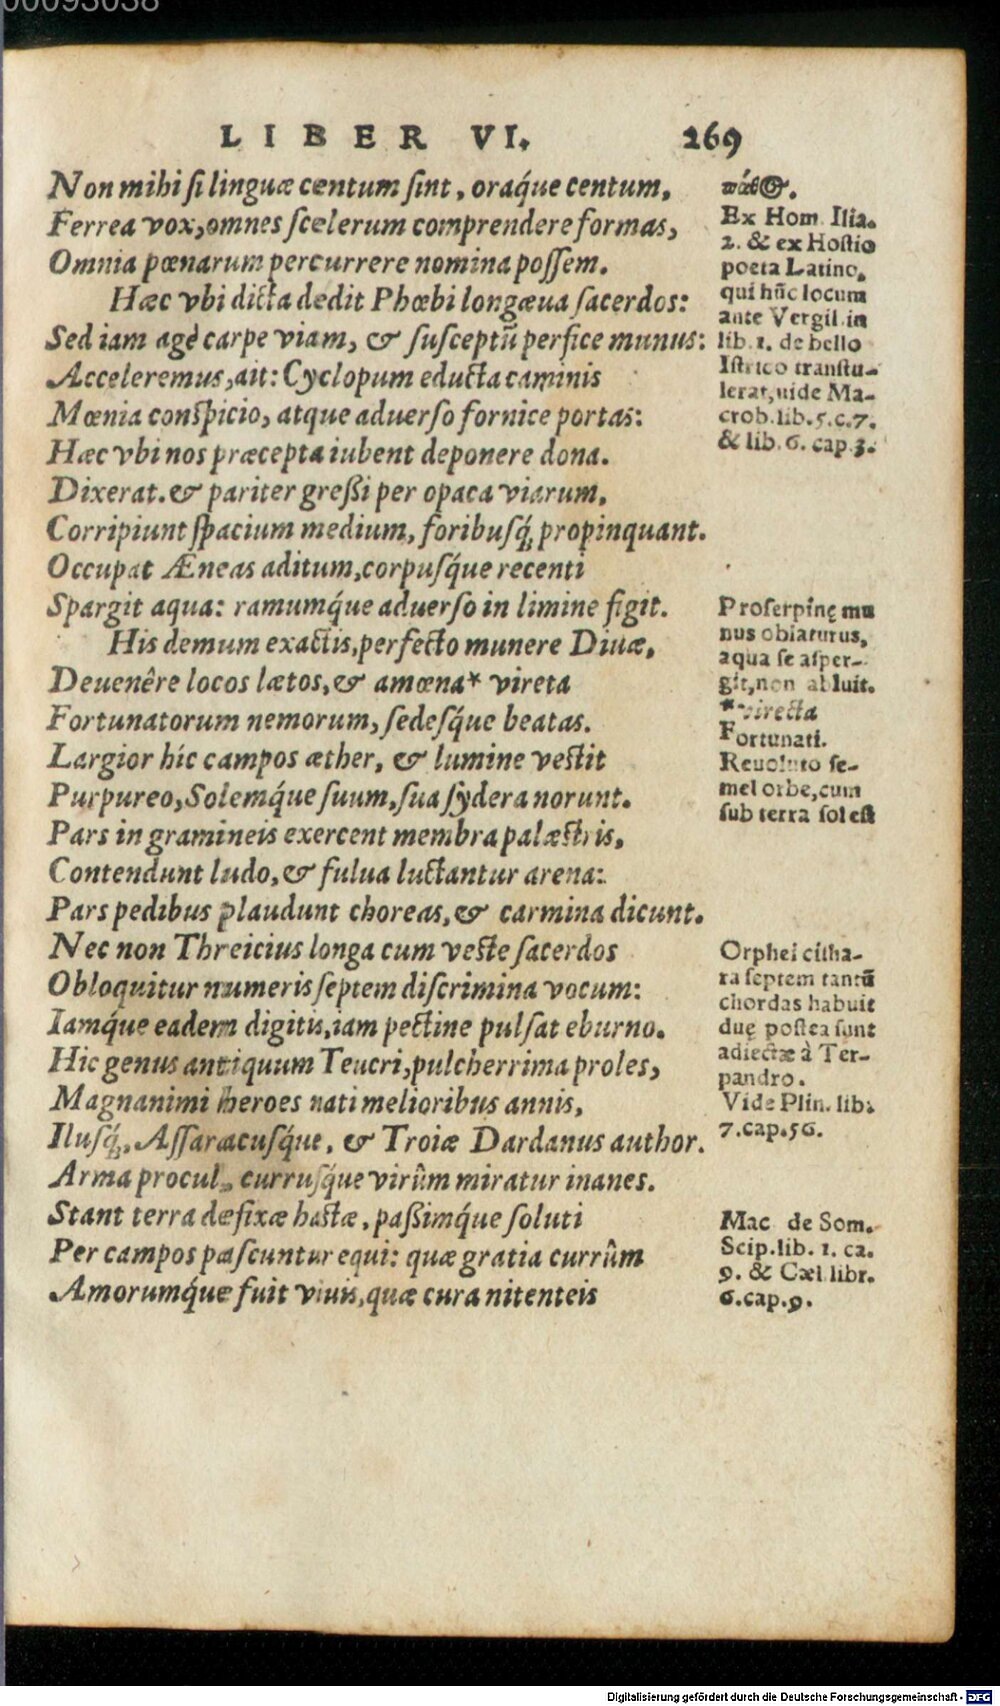 00093038
LIBER VI. 269
Non mihi si linguæ centum sint, oraq́ue centum,
Ferrea vox, omnes scelerum comprendere formas,
Omnia pœnarum percurrere nomina possem.
Hæc vbi dicta dedit Phœbi longæua sacerdos:
Sed iam agè carpe viam, & susceptũ perfice munus:
Acceleremus, ait: Cyclopum educta caminis
Mœnia conspicio, atque aduerso fornice portas:
Hæc vbi nos præcepta iubent deponere dona.
Dixerat. & pariter greßi per opaca viarum,
Corripiunt spacium medium, foribusq́; propinquant.
Occupat Æneas aditum, corpusq́ue recenti
Spargit aqua: ramumq́ue aduerso in limine figit.
His demum exactis, perfecto munere Diuæ,
Deuenêre locos lætos, & amœna* vireta
Fortunatorum nemorum, sedesq́ue beatas.
Largior hîc campos æther, & lumine vestit
Purpureo, Solemq́ue suum, sua sydera norunt.
Pars in gramineis exercent membra palæstris,
Contendunt ludo, & fulua luctantur arena:
Pars pedibus plaudunt choreas, & carmina dicunt.
Nec non Threicius longa cum veste sacerdos
Obloquitur numeris septem discrimina vocum:
Iamq́ue eadem digitis, iam pectine pulsat eburno.
Hic genus antiquum Teucri, pulcherrima proles,
Magnanimi heroes nati melioribus annis,
Ilusq́;, Assaracusq́ue, & Troiæ Dardanus author.
Arma procul, currusq́ue virûm miratur inanes.
Stant terra defixæ hastæ, paßimq́ue soluti
Per campos pascuntur equi: quæ gratia currûm
Amorumq́ue fuit viuis, quæ cura nitenteis
Ex Hom Ilia.
2. & ex Hostio
poeta Latino,
qui hũc locum
ante Vergil. in
lib. 1. de bello
Istrico transtu-
lerat, uide Ma-
crob. lib. 5. c. 7.
& lib. 6. cap. 3.
Proserpinę mu
nus obiaturus,
aqua se asper-
git, non abluit.
*virecta
Fortunati.
Reuoluto se-
mel orbe, cum
sub terra sol est
Orphei citha-
ra septem tantũ
chordas habuit
duę postea sunt
adiectæ à Ter-
pandro.
Vide Plin. lib.
7. cap. 56.
Mac de Som.
Scip. lib. 1. ca.
9. & Cæl. libr.
6. cap. 9.
Digitalisierung gefördert durch die Deutsche Forschungsgemeinschaft - DFG